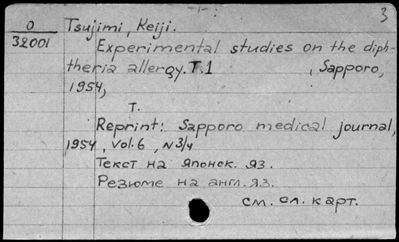 3
O
32001
Tsujimi, Keiji.
Experimental studies on the diph-
theria allergy. T.1 , Sapporo,
1954,
T.
Reprint: Sapporo medical journal,
1954, Vol. 6, N 3/4
Текст на японск. яз.
Резюме на англ. яз.
см. сл. карт.